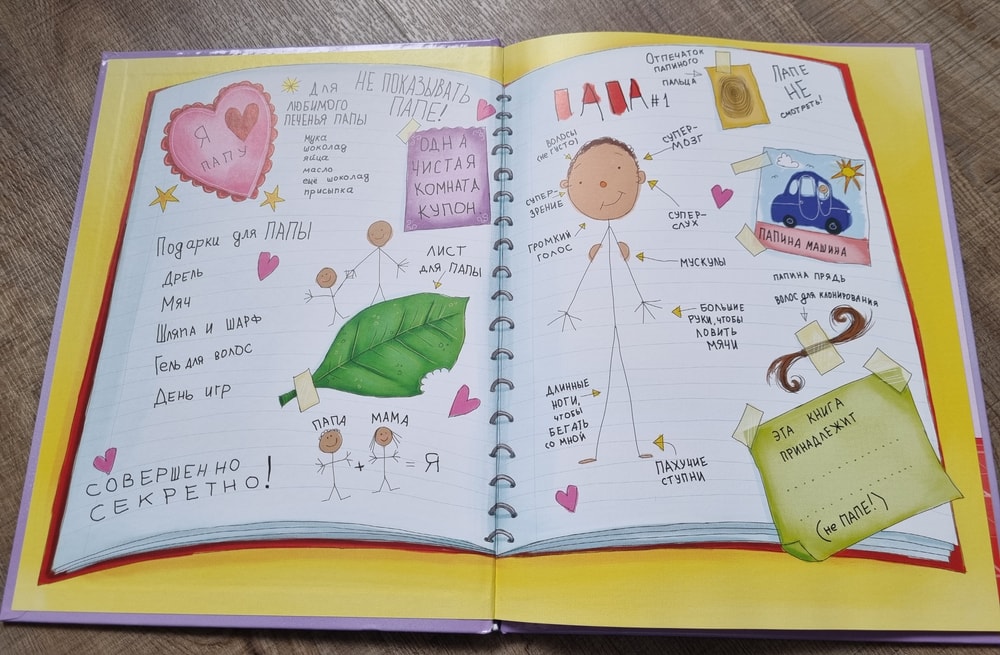 Я
ПАПУ
Для
любимого
печенья папы
мука
шоколад
яйца
масло
ещё шоколад
присыпка
НЕ ПОКАЗЫВАТЬ
ПАПЕ!
ОДНА
ЧИСТАЯ
КОМНАТА
КУПОН
Подарки для ПАПЫ
Дрель
Мяч
Шляпа и шарф
Гель для волос
День игр
ЛИСТ
ДЛЯ ПАПЫ
ПАПА
МАМА
+
= Я
СОВЕРШЕННО
СЕКРЕТНО!
ПАПА #1
ОТПЕЧАТОК
ПАПИНОГО
ПАЛЬЦА
ПАПЕ
НЕ
СМОТРЕТЬ!
ВОЛОСЫ
(НЕ ГУСТО)
СУПЕР-
МОЗГ
СУПЕР-
ЗРЕНИЕ
СУПЕР-
СЛУХ
ГРОМКИЙ
ГОЛОС
МУСКУЛЫ
ПАПИНА МАШИНА
ПАПИНА ПРЯДЬ
ВОЛОС ДЛЯ КЛОНИРОВАНИЯ
БОЛЬШИЕ
РУКИ, ЧТОБЫ
ЛОВИТЬ
МЯЧИ
ДЛИННЫЕ
НОГИ,
ЧТОБЫ
БЕГАТЬ
СО МНОЙ
ПАХУЧИЕ
СТУПНИ
ЭТА КНИГА
ПРИНАДЛЕЖИТ
(не ПАПЕ!)